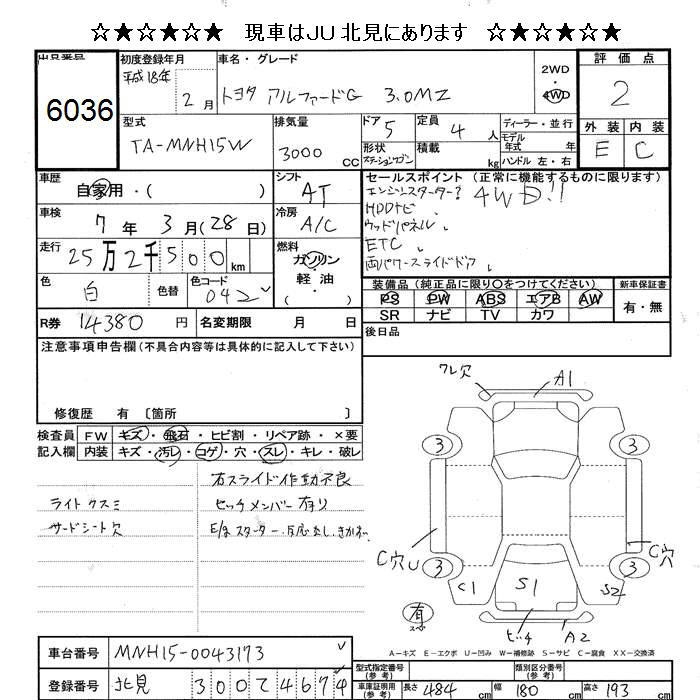 ☆★☆★☆★ 現車はJU北見にあります ☆★☆★☆★
出品番号 初度登録年月 車名・グレード 評価点
6036
平成18年 2月 トヨタ アルファードG 3.0MZ 2WD 4WD 2
型式 排気量 ドア 定員 ディーラー・並行 外装 内装
TA-MNH15W 3000 CC 5 4人 モデル年式 年 E C
形状 ステーションワゴン 積載 kg ハンドル 左・右
車歴 自家用・( ) シフト AT セールスポイント (正常に機能するものに限ります)
エンジンスターター? 4WD!!
車検 7年 3月(28日) 冷房 A/C HDDナビ
ウッドパネル
走行 25万2千500km 燃料 ガソリン 軽油 ( ) ETC
両パワースライドドア
色 白 色替 色コード 042 装備品 (純正品に限り○をつけてください) 新車保証書
PS PW ABS エアB AW 有・無
R券 14380円 名変期限 月 日 SR ナビ TV カワ
注意事項申告欄 (不具合内容等は具体的に記入して下さい) 後日品
修復歴 有 〔箇所 〕
検査員 FW キズ・飛石・ヒビ割・リペア跡・×要
記入欄 内装 キズ・汚レ・コゲ・穴・スレ・キレ・破レ
右スライド作動不良
ライトクスミ ヒッチメンバー有り
サードシート穴 E/gスターター
ワレ穴 A1
3 3
C穴U C穴
3 3
C1 S1 S2
有 スペ
ヒッチ A2
A-キズ E-エクボ U-凹み W-補修跡 S-サビ C-腐食 XX-交換済
車台番号 MNH15-0043173 型式指定番号 (参考) 類別区分番号 (参考)
登録番号 北見 300 て 4674 車庫証明用 (参考) 長さ 484cm 幅 180cm 高さ 193cm